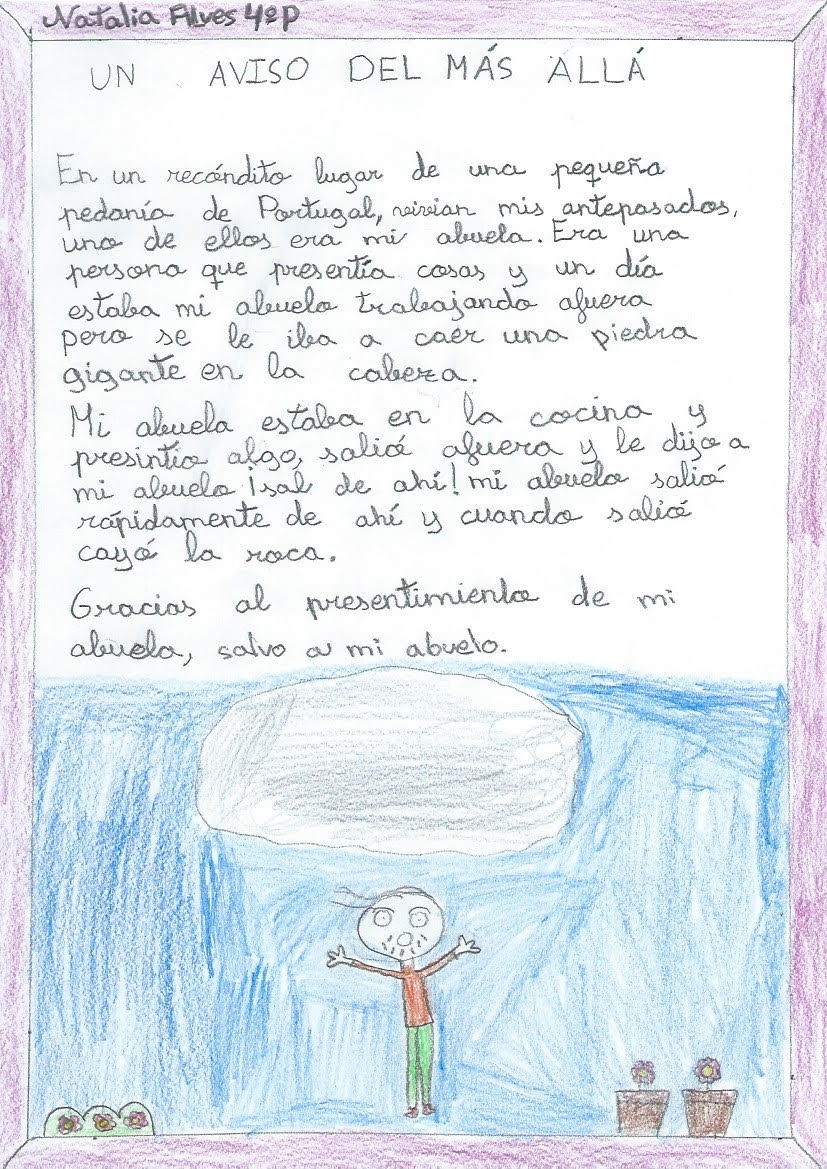 Natalia Alves 4ºP
UN AVISO DEL MÁS ALLÁ
En un recóndito lugar de una pequeña
pedanía de Portugal, vivian mis antepasados,
uno de ellos era mi abuela. Era una
persona que presentía cosas y un día
estaba mi abuelo trabajando afuera
pero se le iba a caer una piedra
gigante en la cabeza.
Mi abuela estaba en la cocina y
presintio algo, salió afuera y le dijo a
mi abuelo ¡sal de ahí! mi abuelo salió
rápidamente de ahí y cuando salió
cayó la roca.
Gracias al presentimiento de mi
abuela, salvo a mi abuelo.